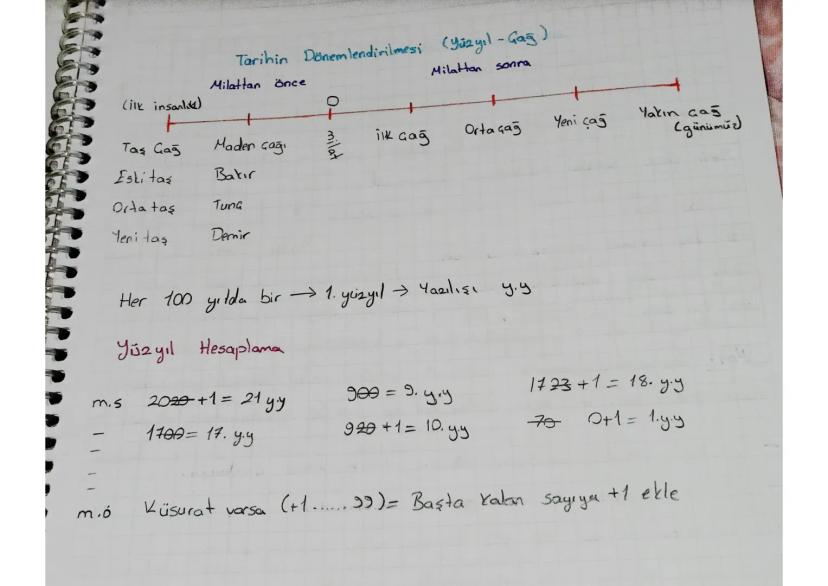 Tarihin Dönemlendirilmesi (Yüzyıl - Çağ)
Milattan önce Milattan sonra
(ilk insanlık) 0
Taş Çağ Maden çağı İlk Çağ Orta çağ Yeni çağ Yakın çağ (günümüz)
Eski taş Bakır
Orta taş Tunç
Yeni taş Demir
Her 100 yılda bir → 1. yüzyıl → Yazılışı y.y
Yüzyıl Hesaplama
m.s 2020 +1 = 21 y.y 900 = 9. y.y 1723 +1 = 18. y.y
- 1700 = 17. y.y 920 +1 = 10. yy 70 0+1 = 1. y y
-
-
-
m.ö Küsurat varsa (+1......99) = Başta kalan sayıya +1 ekle